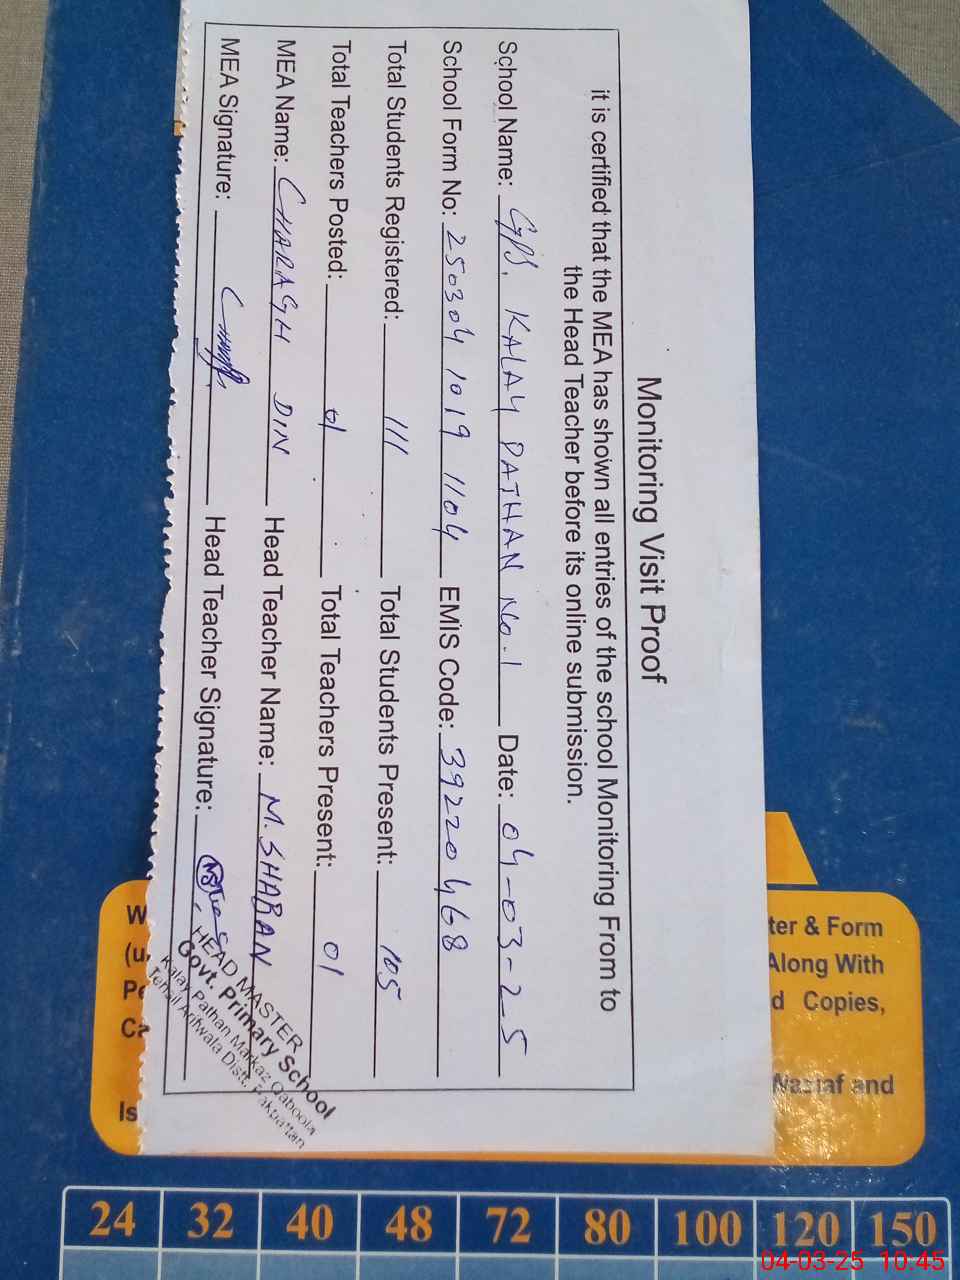 Monitoring Visit Proof
it is certified that the MEA has shown all entries of the school Monitoring From to
the Head Teacher before its online submission.
School Name: GPS. KALAY PATHAN No.1 Date: 04-03-25
School Form No: 250304 1019 1104 EMIS Code: 39220468
Total Students Registered: 111 Total Students Present: 105
Total Teachers Posted: 01 Total Teachers Present: 01
MEA Name: CHARAGH DIN Head Teacher Name: M. SHABAN
MEA Signature: Head Teacher Signature:
HEAD MASTER
Govt. Primary School
Kalay Pathan Markaz Qaboola
Tehsil Arifwala Distt. Pakpattan
ter & Form
Along With
d Copies,
and
Is
24 32 40 48 72 80 100 120 150
04-03-25 10:45